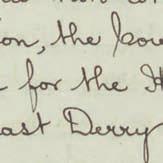 on, the Cou
for the H
ast Derry